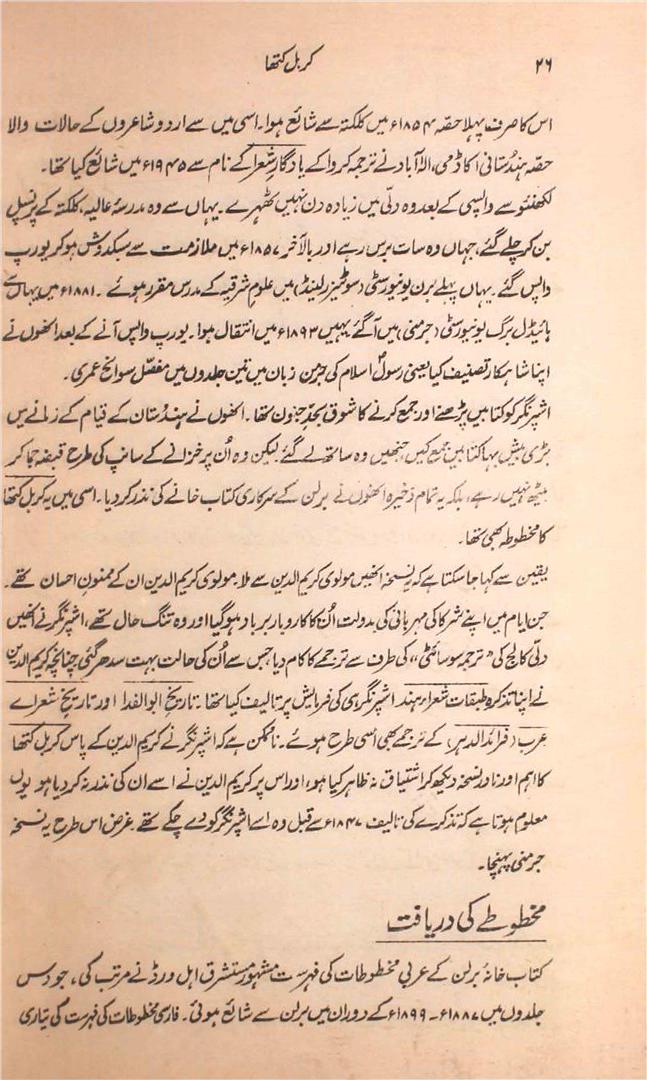 ۲۶
کربل کتھا
اس کا صرف پہلا حصّہ ۱۸۵۴ء میں کلکتہ سے شائع ہوا۔ اسی میں سے اردو شاعروں کے حالات والا
حصّہ ہندُستانی اکاڈمی، الٰہ آباد نے ترجمہ کروا کے یادگارِ شعرا کے نام سے ۱۹۴۵ء میں شائع کیا تھا۔
لکھنؤ سے واپسی کے بعد وہ دلّی میں زیادہ دن نہیں ٹھہرے۔ یہاں سے وہ مدرسۂ عالیہ، کلکتہ کے پرنسپل
بن کر چلے گئے، جہاں وہ سات برس رہے اور بالآخر ۱۸۵۷ء میں ملازمت سے سبکدوش ہو کر یورپ
واپس گئے۔ یہاں پہلے برن یونیورسٹی (سوئٹیزرلینڈ) میں علوم شرقیہ کے مدرس مقرر ہوئے۔ ۱۸۸۱ء میں یہاں سے
ہائیڈل برگ یونیورسٹی (جرمنی) میں آ گئے یہیں ۱۸۹۳ء میں انتقال ہوا۔ یورپ واپس آنے کے بعد انھوں نے
اپنا شاہکار تصنیف کیا یعنی رسولِ اسلام کی جرمن زبان میں تین جلدوں میں مفصّل سوانح عمری۔
اشپرنگر کو کتابیں پڑھنے اور جمع کرنے کا شوق بحدِّ جنون تھا۔ انھوں نے ہندُستان کے قیام کے زمانے میں
بڑی بیش بہا کتابیں جمع کیں، جنھیں وہ ساتھ لے گئے۔ لیکن وہ اُن پر خزانے کے سانپ کی طرح قبضہ جما کر
بیٹھ نہیں رہے، بلکہ یہ تمام ذخیرہ انھوں نے برلن کے سرکاری کتاب خانے کی نذر کر دیا۔ اسی میں یہ کربل کتھا
کا مخطوطہ بھی تھا۔
یقین سے کہا جا سکتا ہے کہ یہ نسخہ انھیں مولوی کریم الدین سے ملا۔ مولوی کریم الدین ان کے ممنونِ احسان تھے۔
جن ایام میں اپنے شرکا کی مہربانی کی بدولت اُن کا کاروبار برباد ہو گیا اور وہ تنگ حال تھے، اشپرنگر نے انھیں
دلّی کالج کی ”ترجمہ سوسائٹی“ کی طرف سے ترجمے کا کام دیا جس سے اُن کی حالت بہت سدھر گئی چنانچہ کریم الدین
نے اپنا تذکرہ طبقات شعراء ہند اشپرنگر ہی کی فرمایش پر تالیف کیا تھا۔ تاریخ ابوالفدا اور تاریخ شعراے
عرب (فرائدالدہر) کے ترجمے بھی اُسی طرح ہوئے۔ ناممکن ہے کہ اشپرنگر نے کریم الدین کے پاس کربل کتھا
کا اہم اور نادر نسخہ دیکھ کر اشتیاق نہ ظاہر کیا ہو، اور اس پر کریم الدین نے اسے ان کی نذر نہ کر دیا ہو یوں
معلوم ہوتا ہے کہ تذکرے کی تالیف ۱۸۴۷ء سے قبل وہ اسے اشپرنگر کو دے چکے تھے۔ غرض اس طرح یہ نسخہ
جرمنی پہنچا۔
مخطوطے کی دریافت
کتاب خانۂ برلن کے عربی مخطوطات کی فہرست مشہور مستشرق اہل ورڈ نے مرتب کی، جو دس
جلدوں میں ۱۸۸۷ء-۱۸۹۹ء کے دوران میں برلن سے شائع ہوئی۔ فارسی مخطوطات کی فہرست کی تیاری